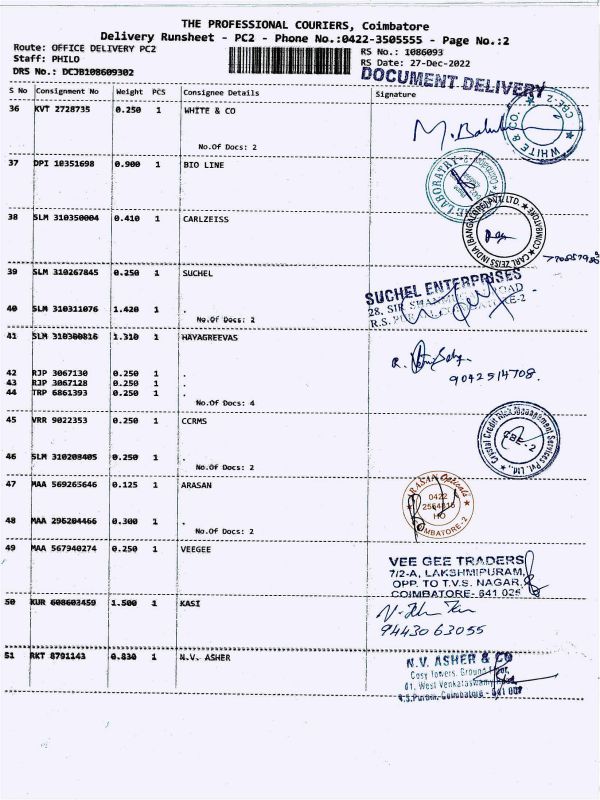 THE PROFESSIONAL COURIERS, Coimbatore
Delivery Runsheet - PC2 - Phone No.:0422-3505555 - Page No.:2
Route: OFFICE DELIVERY PC2
RS No.: 1086093
Staff: PHILO
RS Date: 27-Dec-2022
DRS No.: DCJB108609302
DOCUMENT DELIVERY
S No Consignment No Weight PCS Consignee Details Signature
36 KVT 2728735 0.250 1 WHITE & CO
No.Of Docs: 2
WHITE & CO. CBE-2
37 DPI 10351698 0.900 1 BIO LINE
38 SLM 310350004 0.410 1 CARLZEISS
CARL ZEISS INDIA (BANGALORE) PVT. LTD. COIMBATORE
39 SLM 310267845 0.250 1 SUCHEL
SUCHEL ENTERPRISES
28, SIR ROAD
40 SLM 310311076 1.420 1 .
No.Of Docs: 2
41 SLM 310300816 1.310 1 HAYAGREEVAS
42 RJP 3067130 0.250 1 .
9042514708.
43 RJP 3067128 0.250 1 .
44 TRP 6861393 0.250 1 .
No.Of Docs: 4
45 VRR 9022353 0.250 1 CCRMS
Crystal Credit Risk Management Services Pvt. Ltd.,
CBE-2
46 SLM 310203405 0.250 1 .
No.Of Docs: 2
47 MAA 569265646 0.125 1 ARASAN
ARASAN Opticals
0422
COIMBATORE-2
48 MAA 296204466 0.300 1 .
No.Of Docs: 2
49 MAA 567940274 0.250 1 VEEGEE
VEE GEE TRADERS
7/2-A, LAKSHMIPURAM,
OPP. TO T.V.S. NAGAR,
COIMBATORE-641 025
50 KUR 608603459 1.500 1 KASI
9443063055
51 RKT 8791143 0.830 1 N.V. ASHER
N.V. ASHER & CO
Cosy Towers, Ground Floor,
61, West Venkataswamy Road,
R.S.Puram, Coimbatore - 641 002